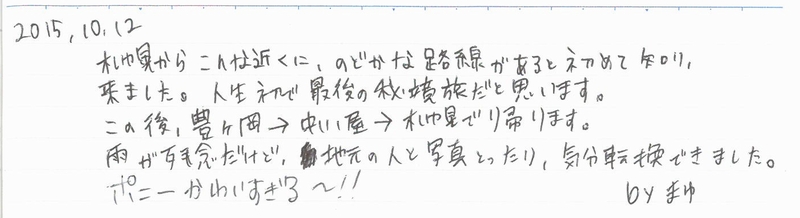 2015,10,12
札幌から こんな近くに、のどかな路線があると初めて知り、
来ました。人生初で最後の秘境旅だと思います。
この後、豊ヶ岡→中小屋→札幌でり帰ります。
雨が残念だけど、地元の人と写真とったり、気分転換できました。
ポニーかわいすぎる〜!! by まゆ